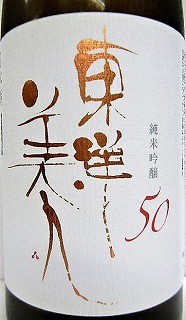 東洋美人
純米吟醸
50